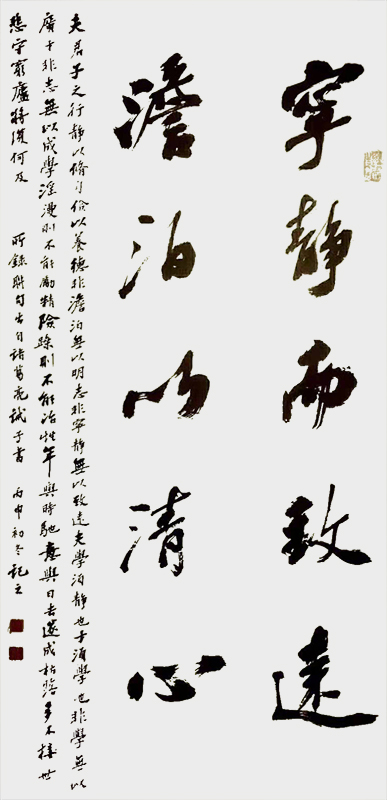 寧靜而致遠
澹泊以清心
夫君子之行靜以脩身儉以養德非澹泊無以明志非寧靜無以致遠夫學泊靜也才須學也非學無以
廣才非志無以成學淫漫則不能勵精險躁則不能治性年與時馳意與日去遂成枯落多不接世
悲守窮廬將復何及 所錄聯句出自諸葛亮誡子書 丙申初冬記之